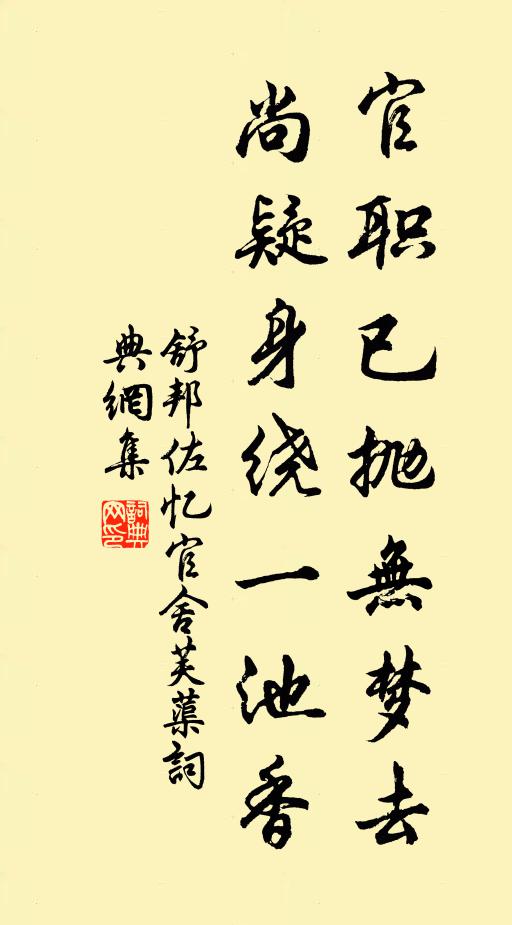 官职已抛無梦去
尚疑身绕一池香
舒邦佐忆官舍芙蕖詞
典網集
詞典
网印